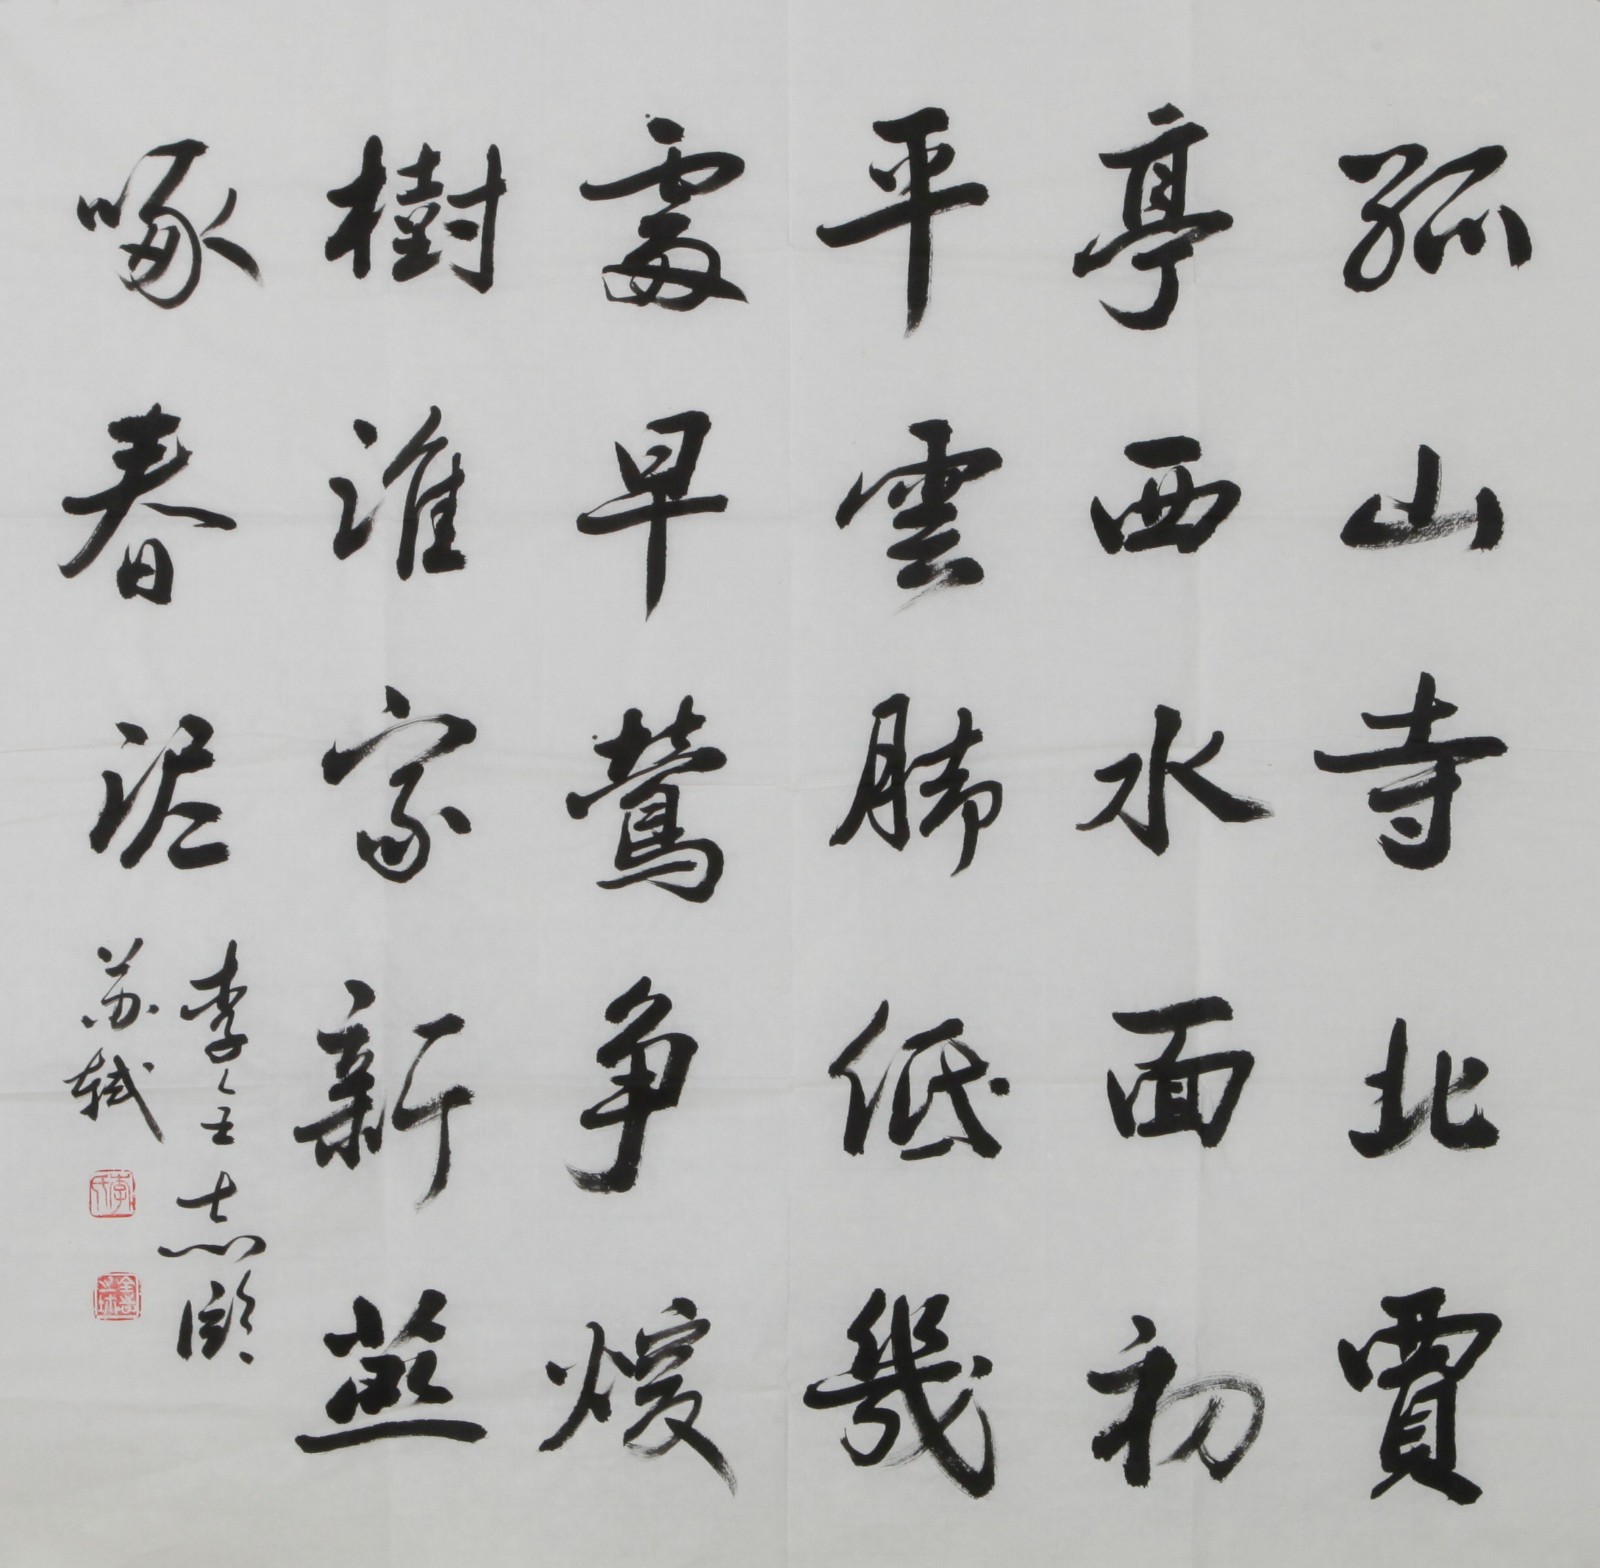 孤山寺北賈
亭西水面初
平雲腳低幾
處早鶯争暖
樹誰家新燕
啄春泥
李
苏轼
李氏